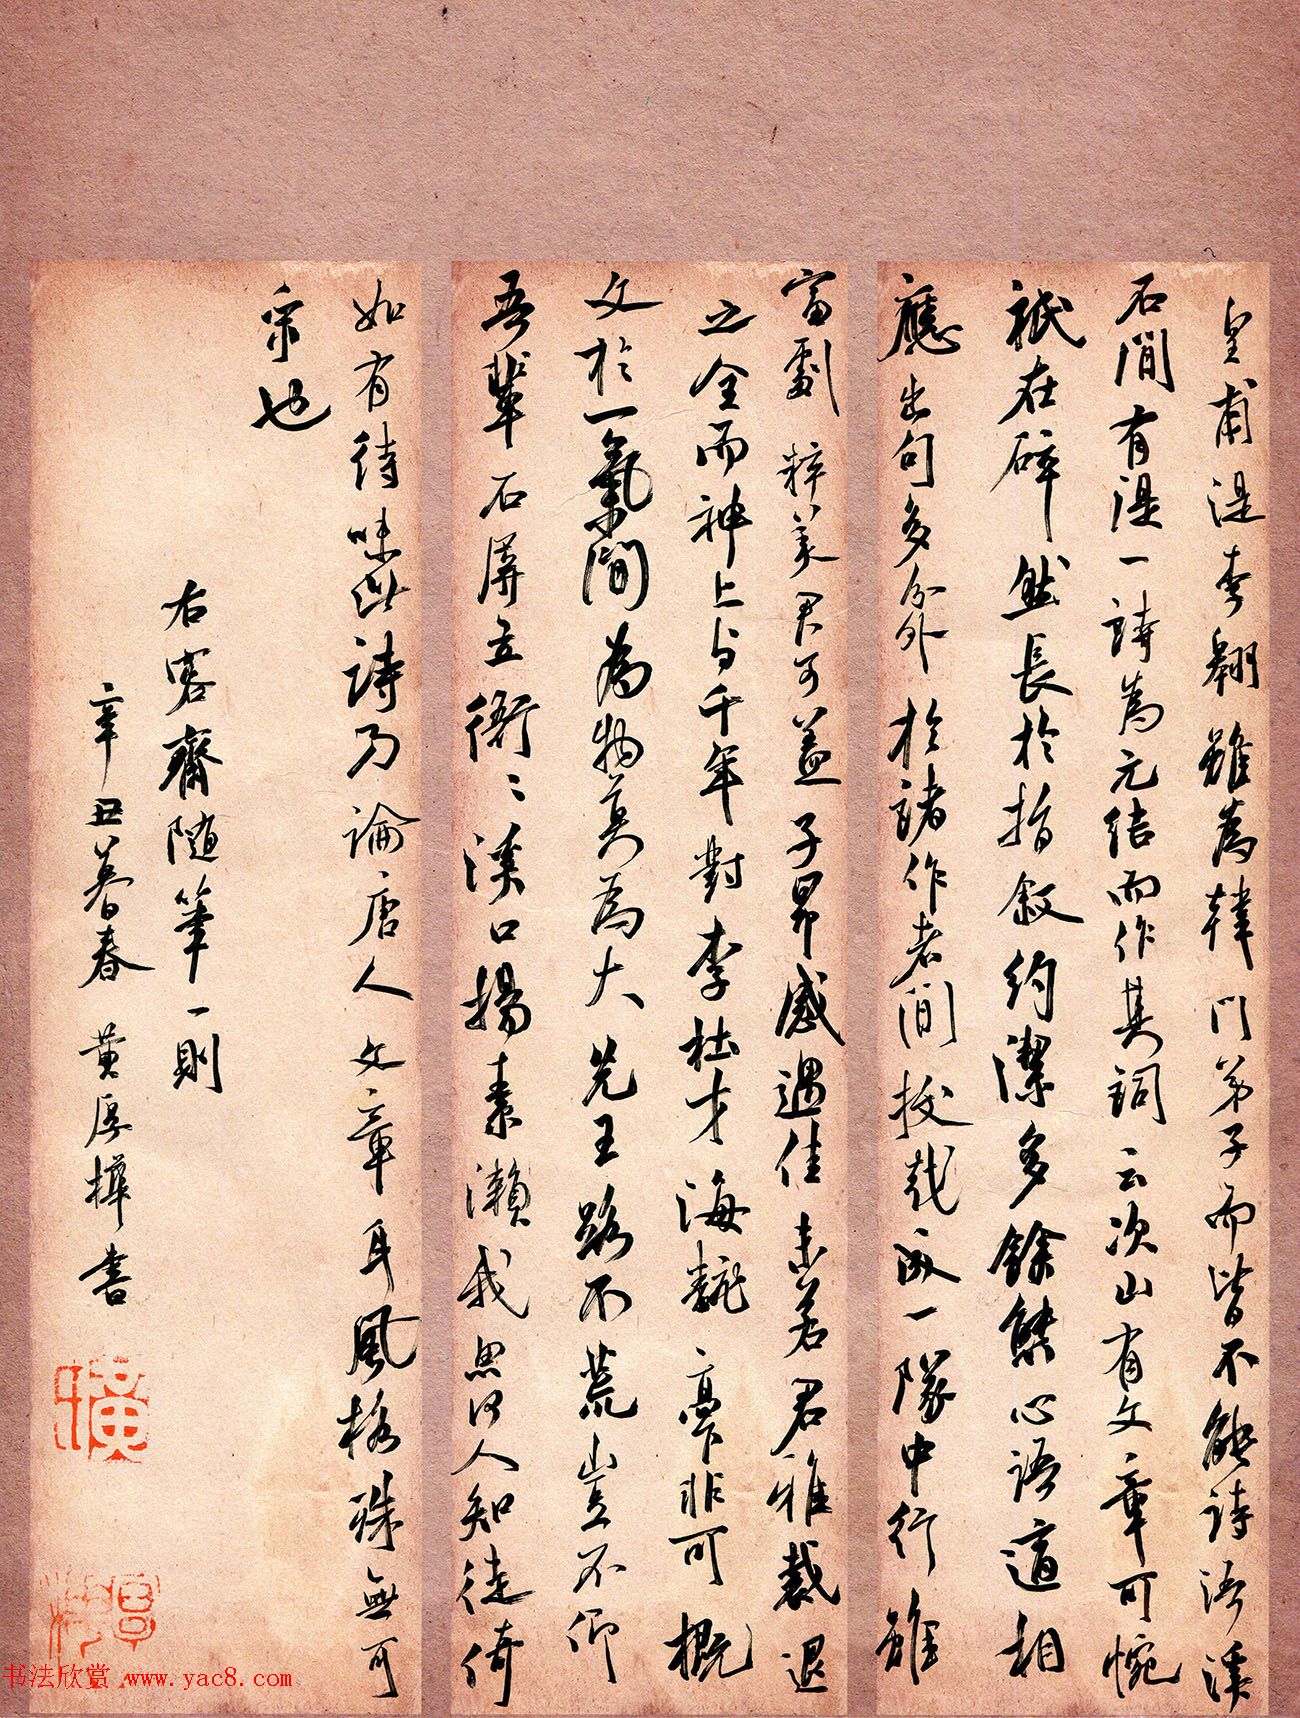 皇甫湜李翱雖為韓門弟子而皆不能詩浯溪
石間有湜一詩為元結而作其詞云次山有文章可惋
祇在碎然長於指叙約潔多餘態心語適相
應出句多分外於諸作者間拔戟成一隊中行雖
富劇粹美君可蓋子昂感遇佳未若君雅裁退
之全而神上与千年對李杜才海翻高下非可概
文於一氣間為物莫為大先王路不荒豈不仰
吾輩石屏立衙〻溪口揚素瀨我思何人知徒倚
如有待味此詩乃論唐人文章耳風格殊無可
采也
右容齋随筆一則
辛丑暮春 黄厚樺書
书法欣赏 www.yac8.com